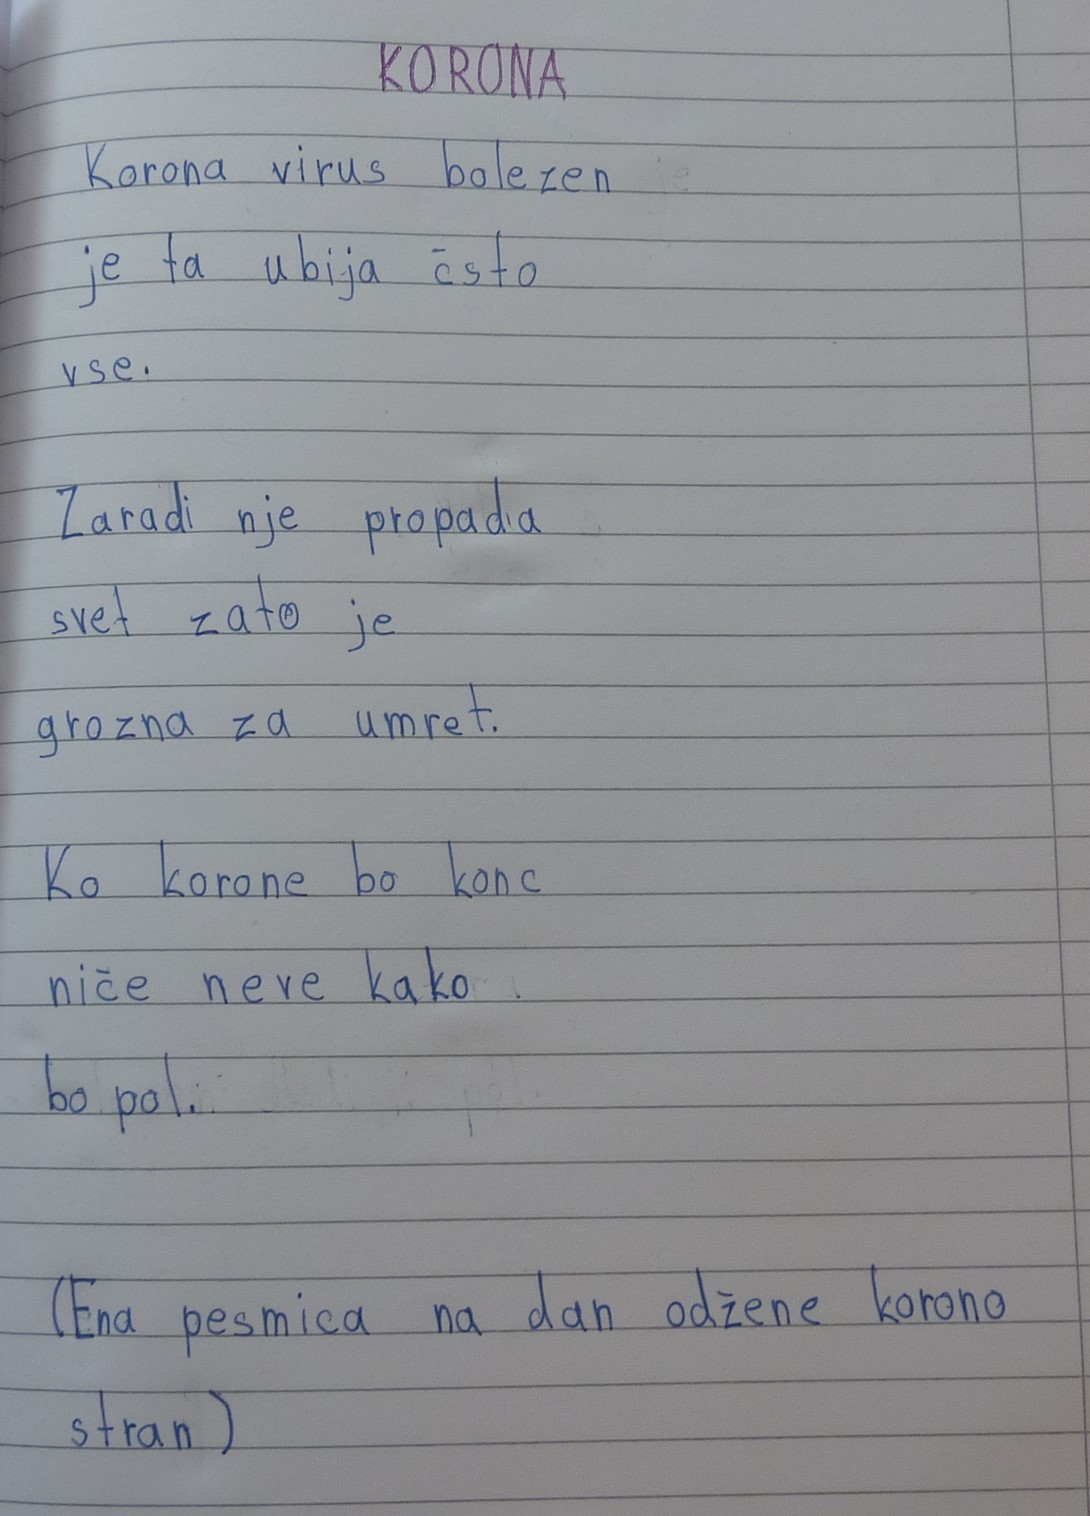 KORONA
Korona virus bolezen
je ta ubija čsto
vse.
Zaradi nje propada
svet zato je
grozna za umret.
Ko korone bo konc
niče neve kako
bo pol.
(Ena pesmica na dan odžene korono
stran)